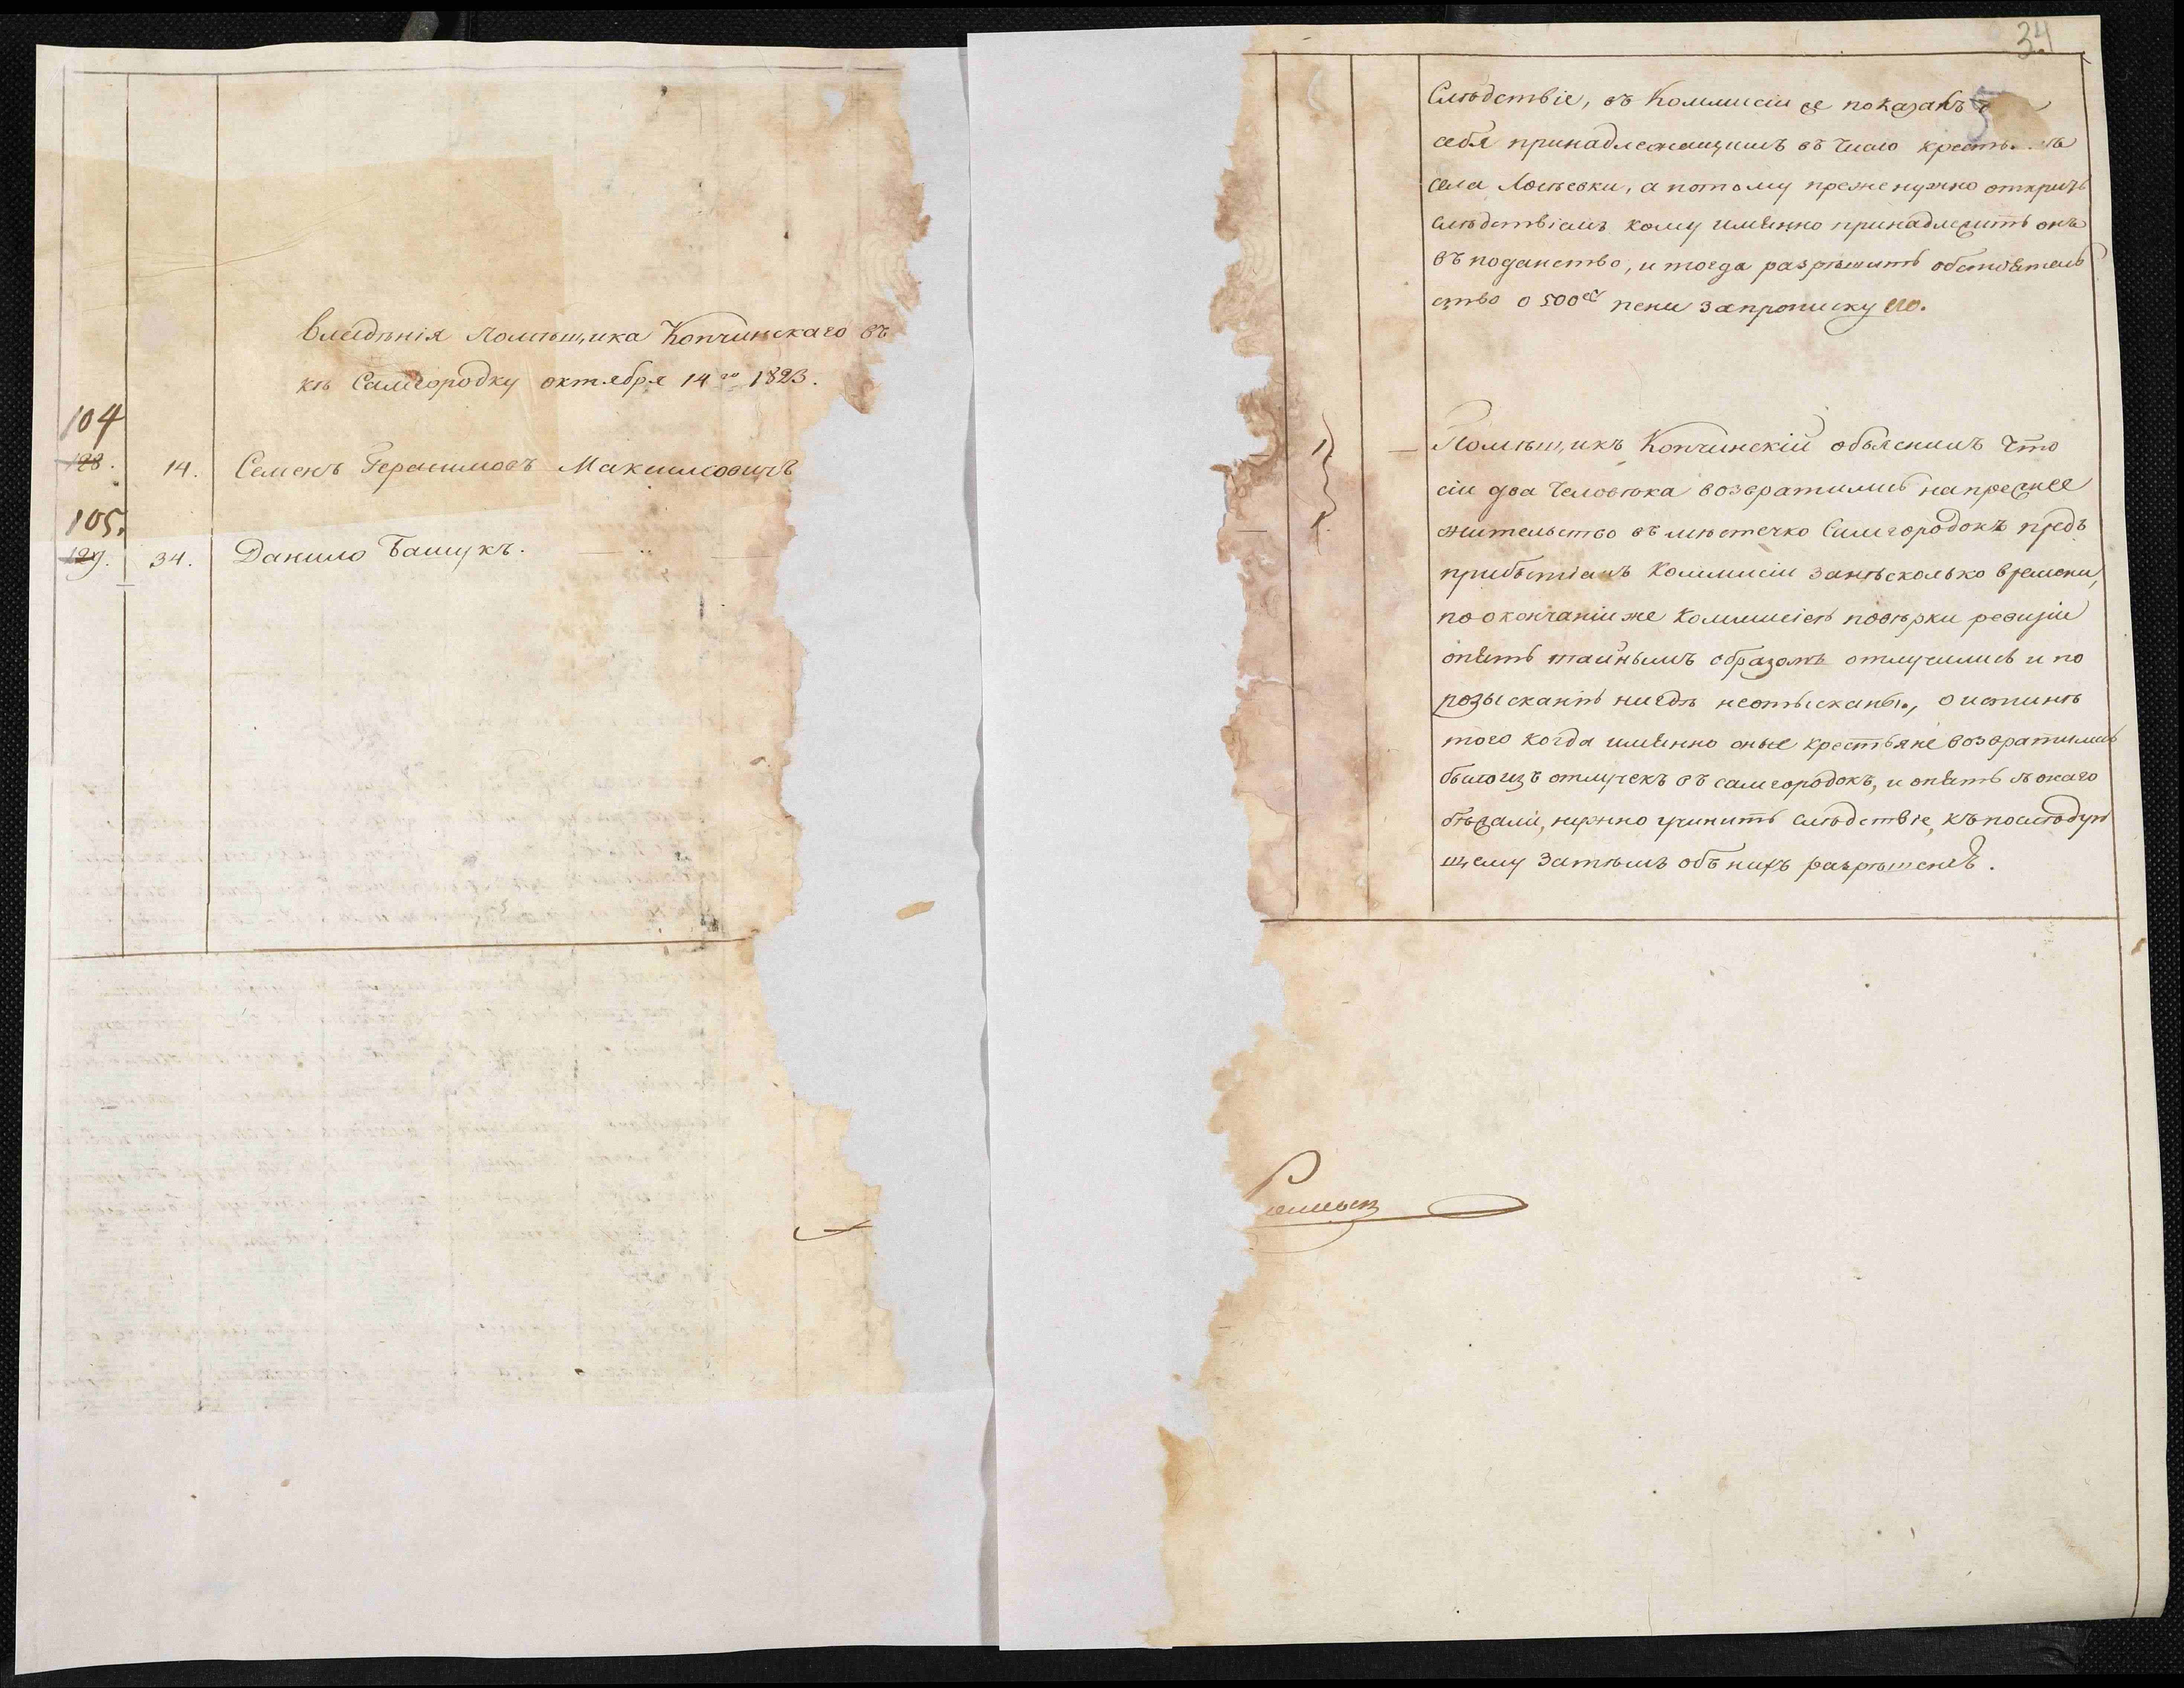 Владѣнія Помѣщика Копчинскаго въ
кѣ Самгородку октября 14го 1823.
104
128. 14. Семенъ Герасимовъ Максимовичъ
105.
129. 34. Данило Башукъ.
34
Слѣдствіе, въ Коммисіи не показанъ
себя принадлежащимъ въ число
села Лосіевки, а потому прежне нужно открить
слѣдствіемъ кому имянно принадлежитъ онъ
въ поданство, и тогда разрѣшить обстоятель
ство о 500 пени за прописку его.
1 — Помѣщикъ Копчинскій объяснилъ что
сіи два человѣка возвратились на прежнее
1. жительство въ мѣстечко Самгородокъ предъ
прибытіемъ Коммисіи за нѣсколько времени,
по окончаніи же Коммисіею повѣрки ревизіи
опять тайнымъ образомъ отлучились и по
розысканію нигдѣ неотысканы, о истинѣ
того когда имянно оные крестьяне возвратились
было изъ отлучекъ въ самгородокъ, и опять з онаго
бѣжали, нужно учинить слѣдствіе, къ послѣдую
щему затѣмъ объ нихъ разрѣшенію.